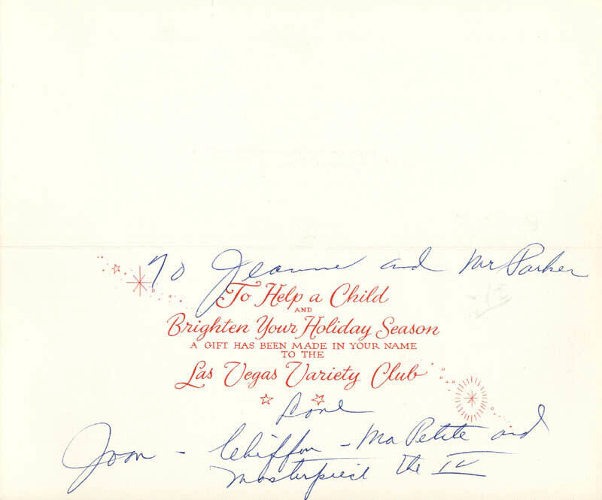 To Jeanne and Mr Parker
To Help a Child
AND
Brighten Your Holiday Season
A GIFT HAS BEEN MADE IN YOUR NAME
TO THE
Las Vegas Variety Club
Love
Joan - Chiffon - Ma Petite and
Masterpiece the IV